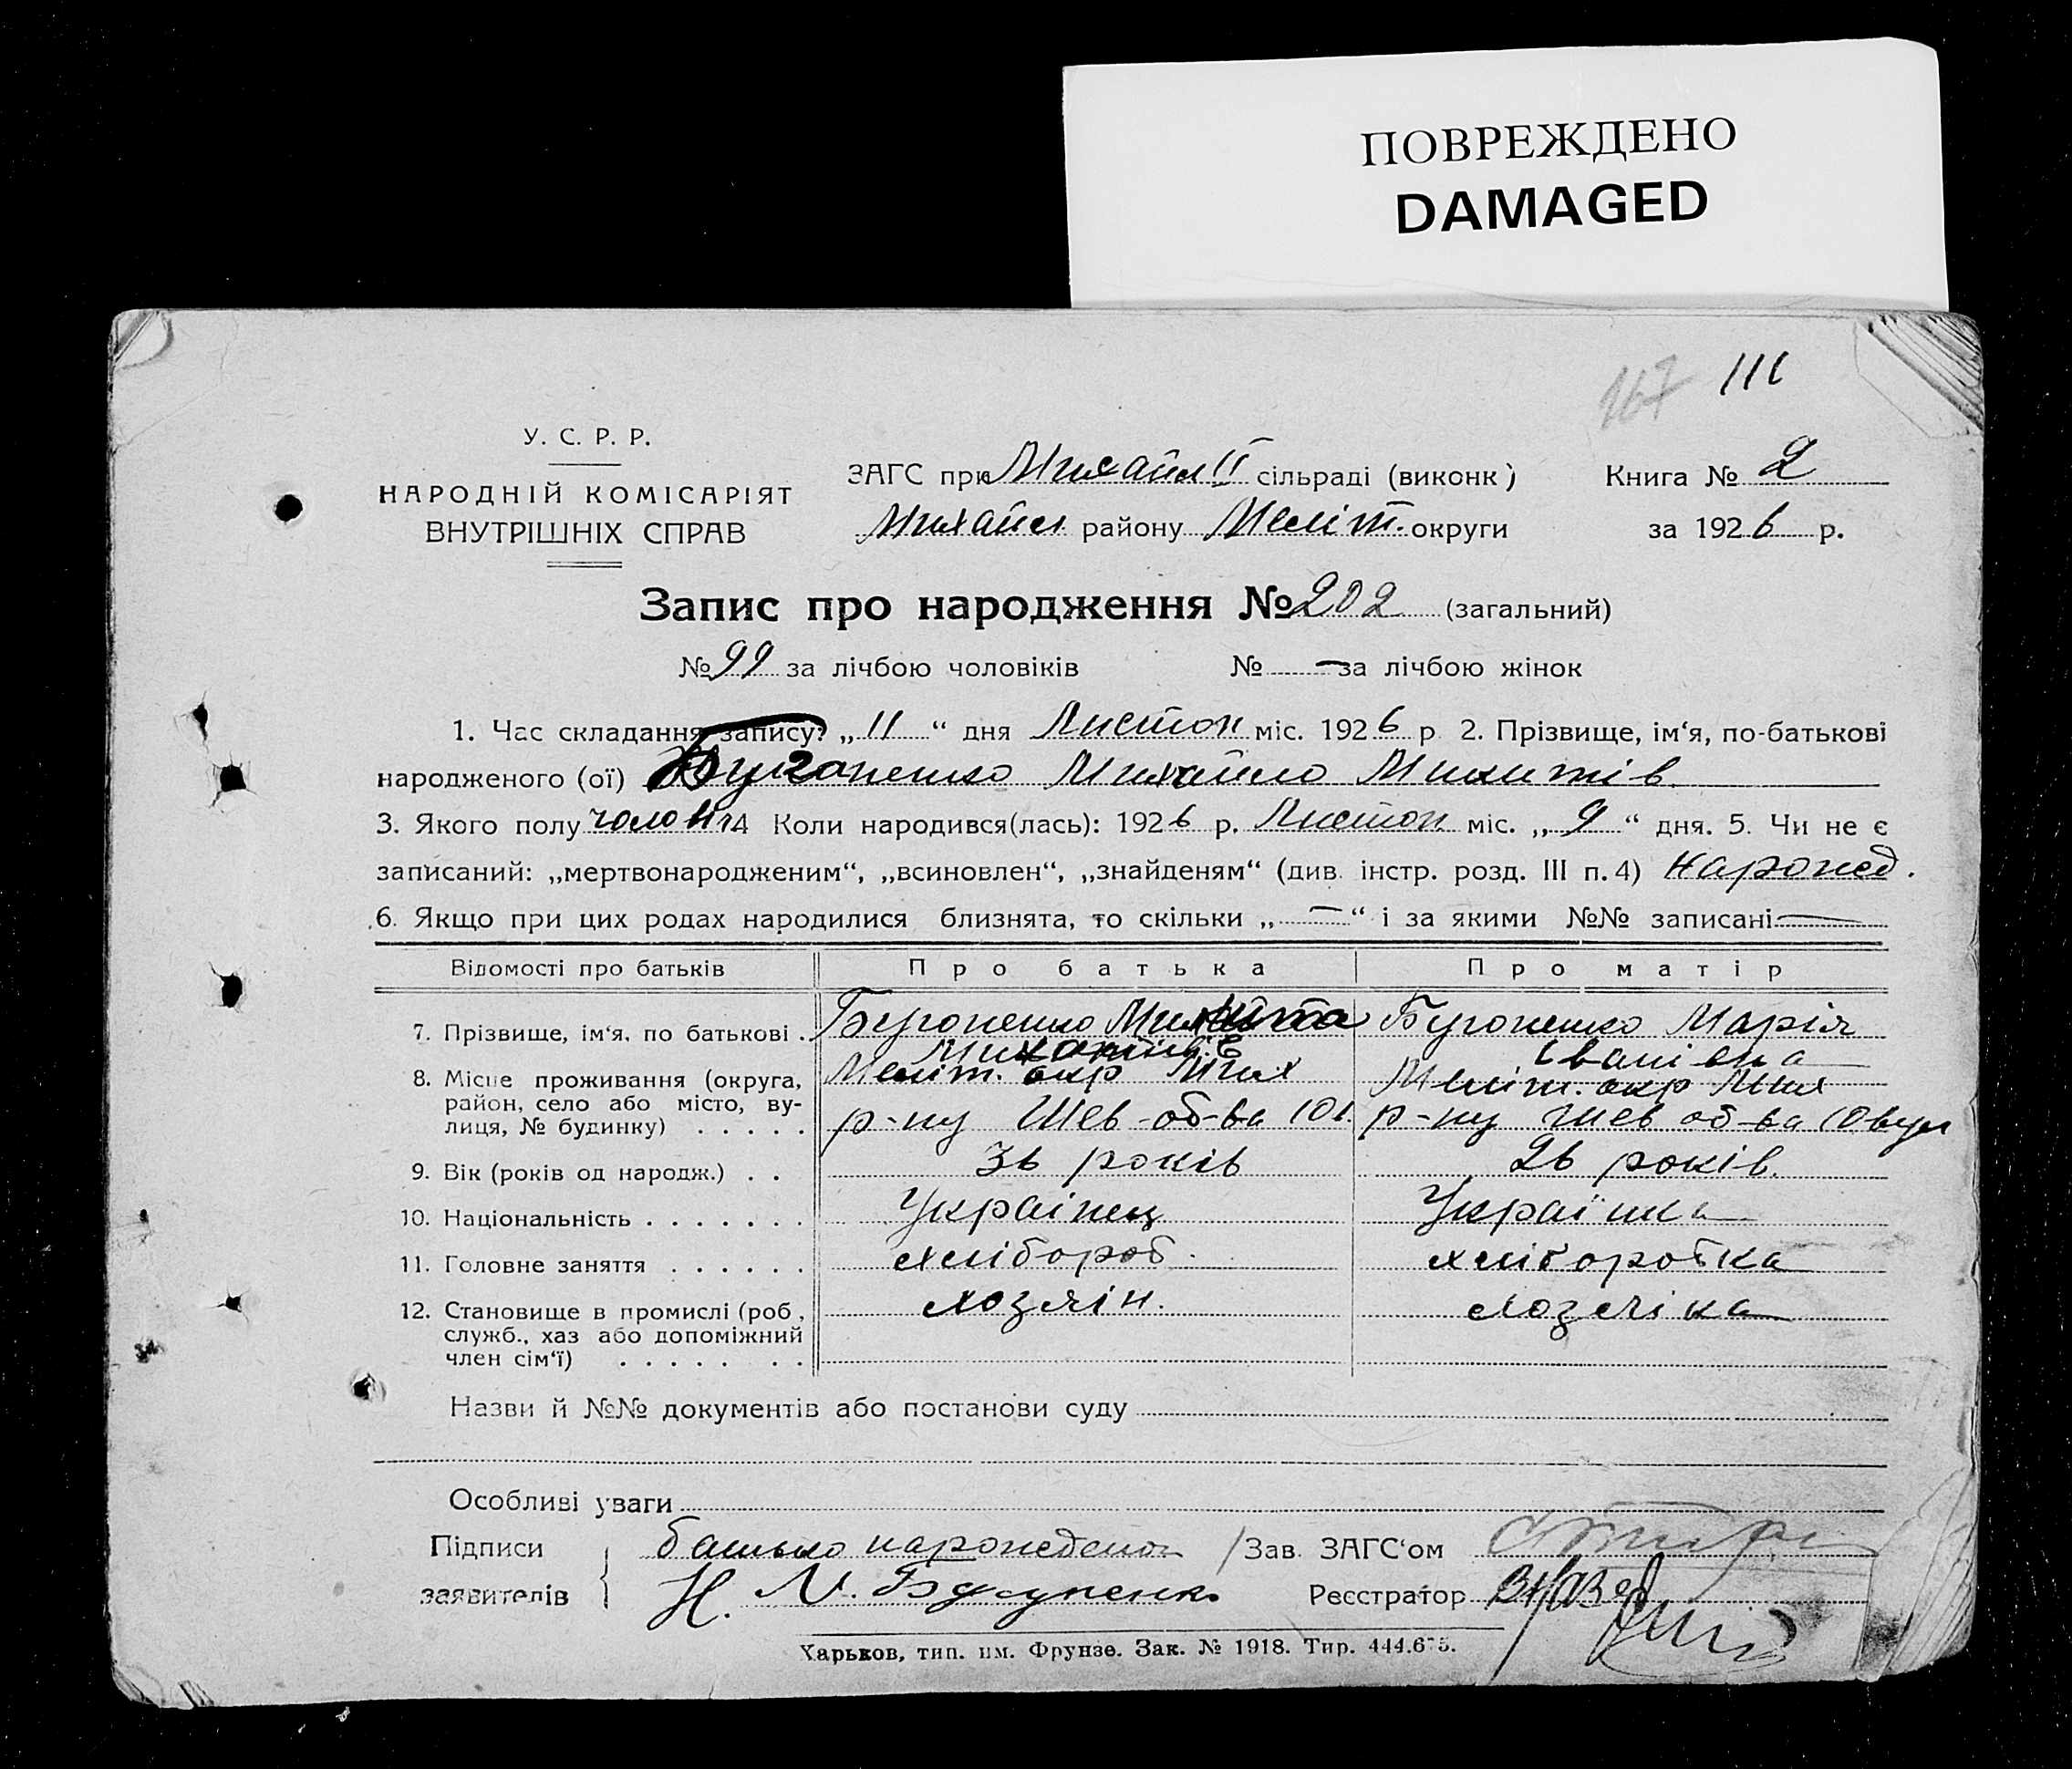 ПОВРЕЖДЕНО
DAMAGED
167 111
У. С. Р. Р.
НАРОДНІЙ КОМІСАРІЯТ
ВНУТРІШНІХ СПРАВ
ЗАГС при Михайл II сільраді (виконк)
Михайл. району Меліт. округи
Книга № 2
за 1926 р.
Запис про народження № 202 (загальний)
№ 99 за лічбою чоловіків № — за лічбою жінок
1. Час складання запису? „ 11 “ дня Листоп міс. 1926 р 2. Прізвище, ім‘я, по-батькові
народженого (ої) Михайло Микитів.
3. Якого полу 4 Коли народився(лась): 1926 р. Листоп. міс. „ 9 “ дня. 5. Чи не є
записаний: „мертвонародженим“, „всиновлен“, „знайденям“ (див. інстр. розд. III п. 4) нарожед.
6. Якщо при цих родах народилися близнята, то скільки „ — “ і за якими №№ записані —
Відомості про батьків Про батька Про матір
7. Прізвище, ім‘я, по батькові . Микита Марія
Іванівна
8. Місце проживання (округа,
район, село або місто, ву-
лиця, № будинку) . . . . .
Меліт. окр Мих
р-ну Шев об-ва 10
Меліт. окр Мих
р-ну Шев об-ва 10 вул
9. Вік (років од народж.) . . 36 років 26 років.
10. Національність . . . . . . . Українец Українка
11. Головне заняття . . . . . . хлібороб. хліборобка
12. Становище в промислі (роб,
служб., хаз або допоміжний
член сім‘ї) . . . . . . .
хозяін. хозяіка
Назви й №№ документів або постанови суду
Особливі уваги
Підписи
заявителів
батько
Н. М.
Зав. ЗАГС‘ом
Реєстратор
Харьков, тип. им. Фрунзе. Зак. № 1918. Тир. 444.675.